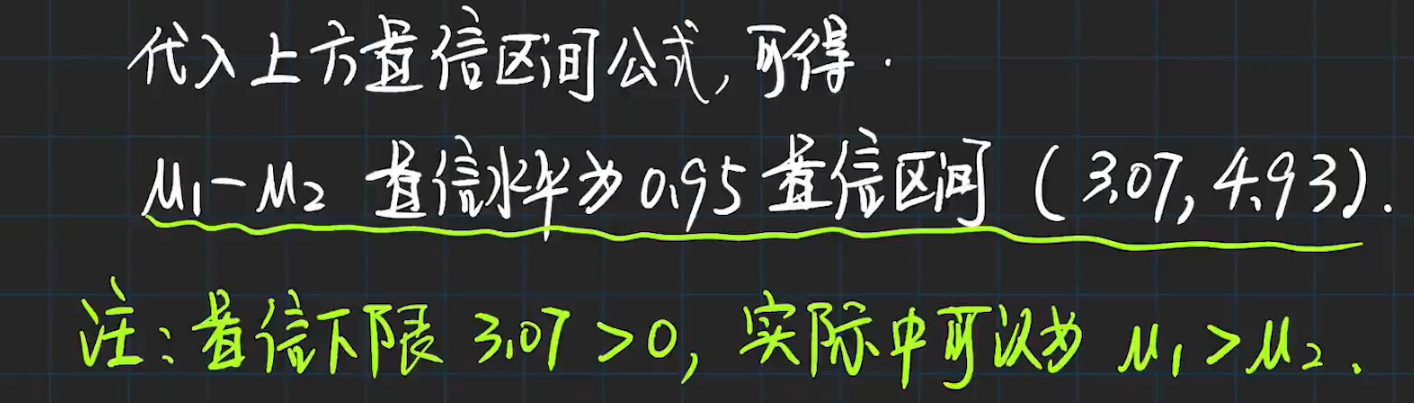 代入上方置信区间公式,可得.
μ₁-μ₂ 置信水平为0.95置信区间 (3.07, 4.93).
注:置信下限 3.07>0, 实际中可认为 μ₁>μ₂.